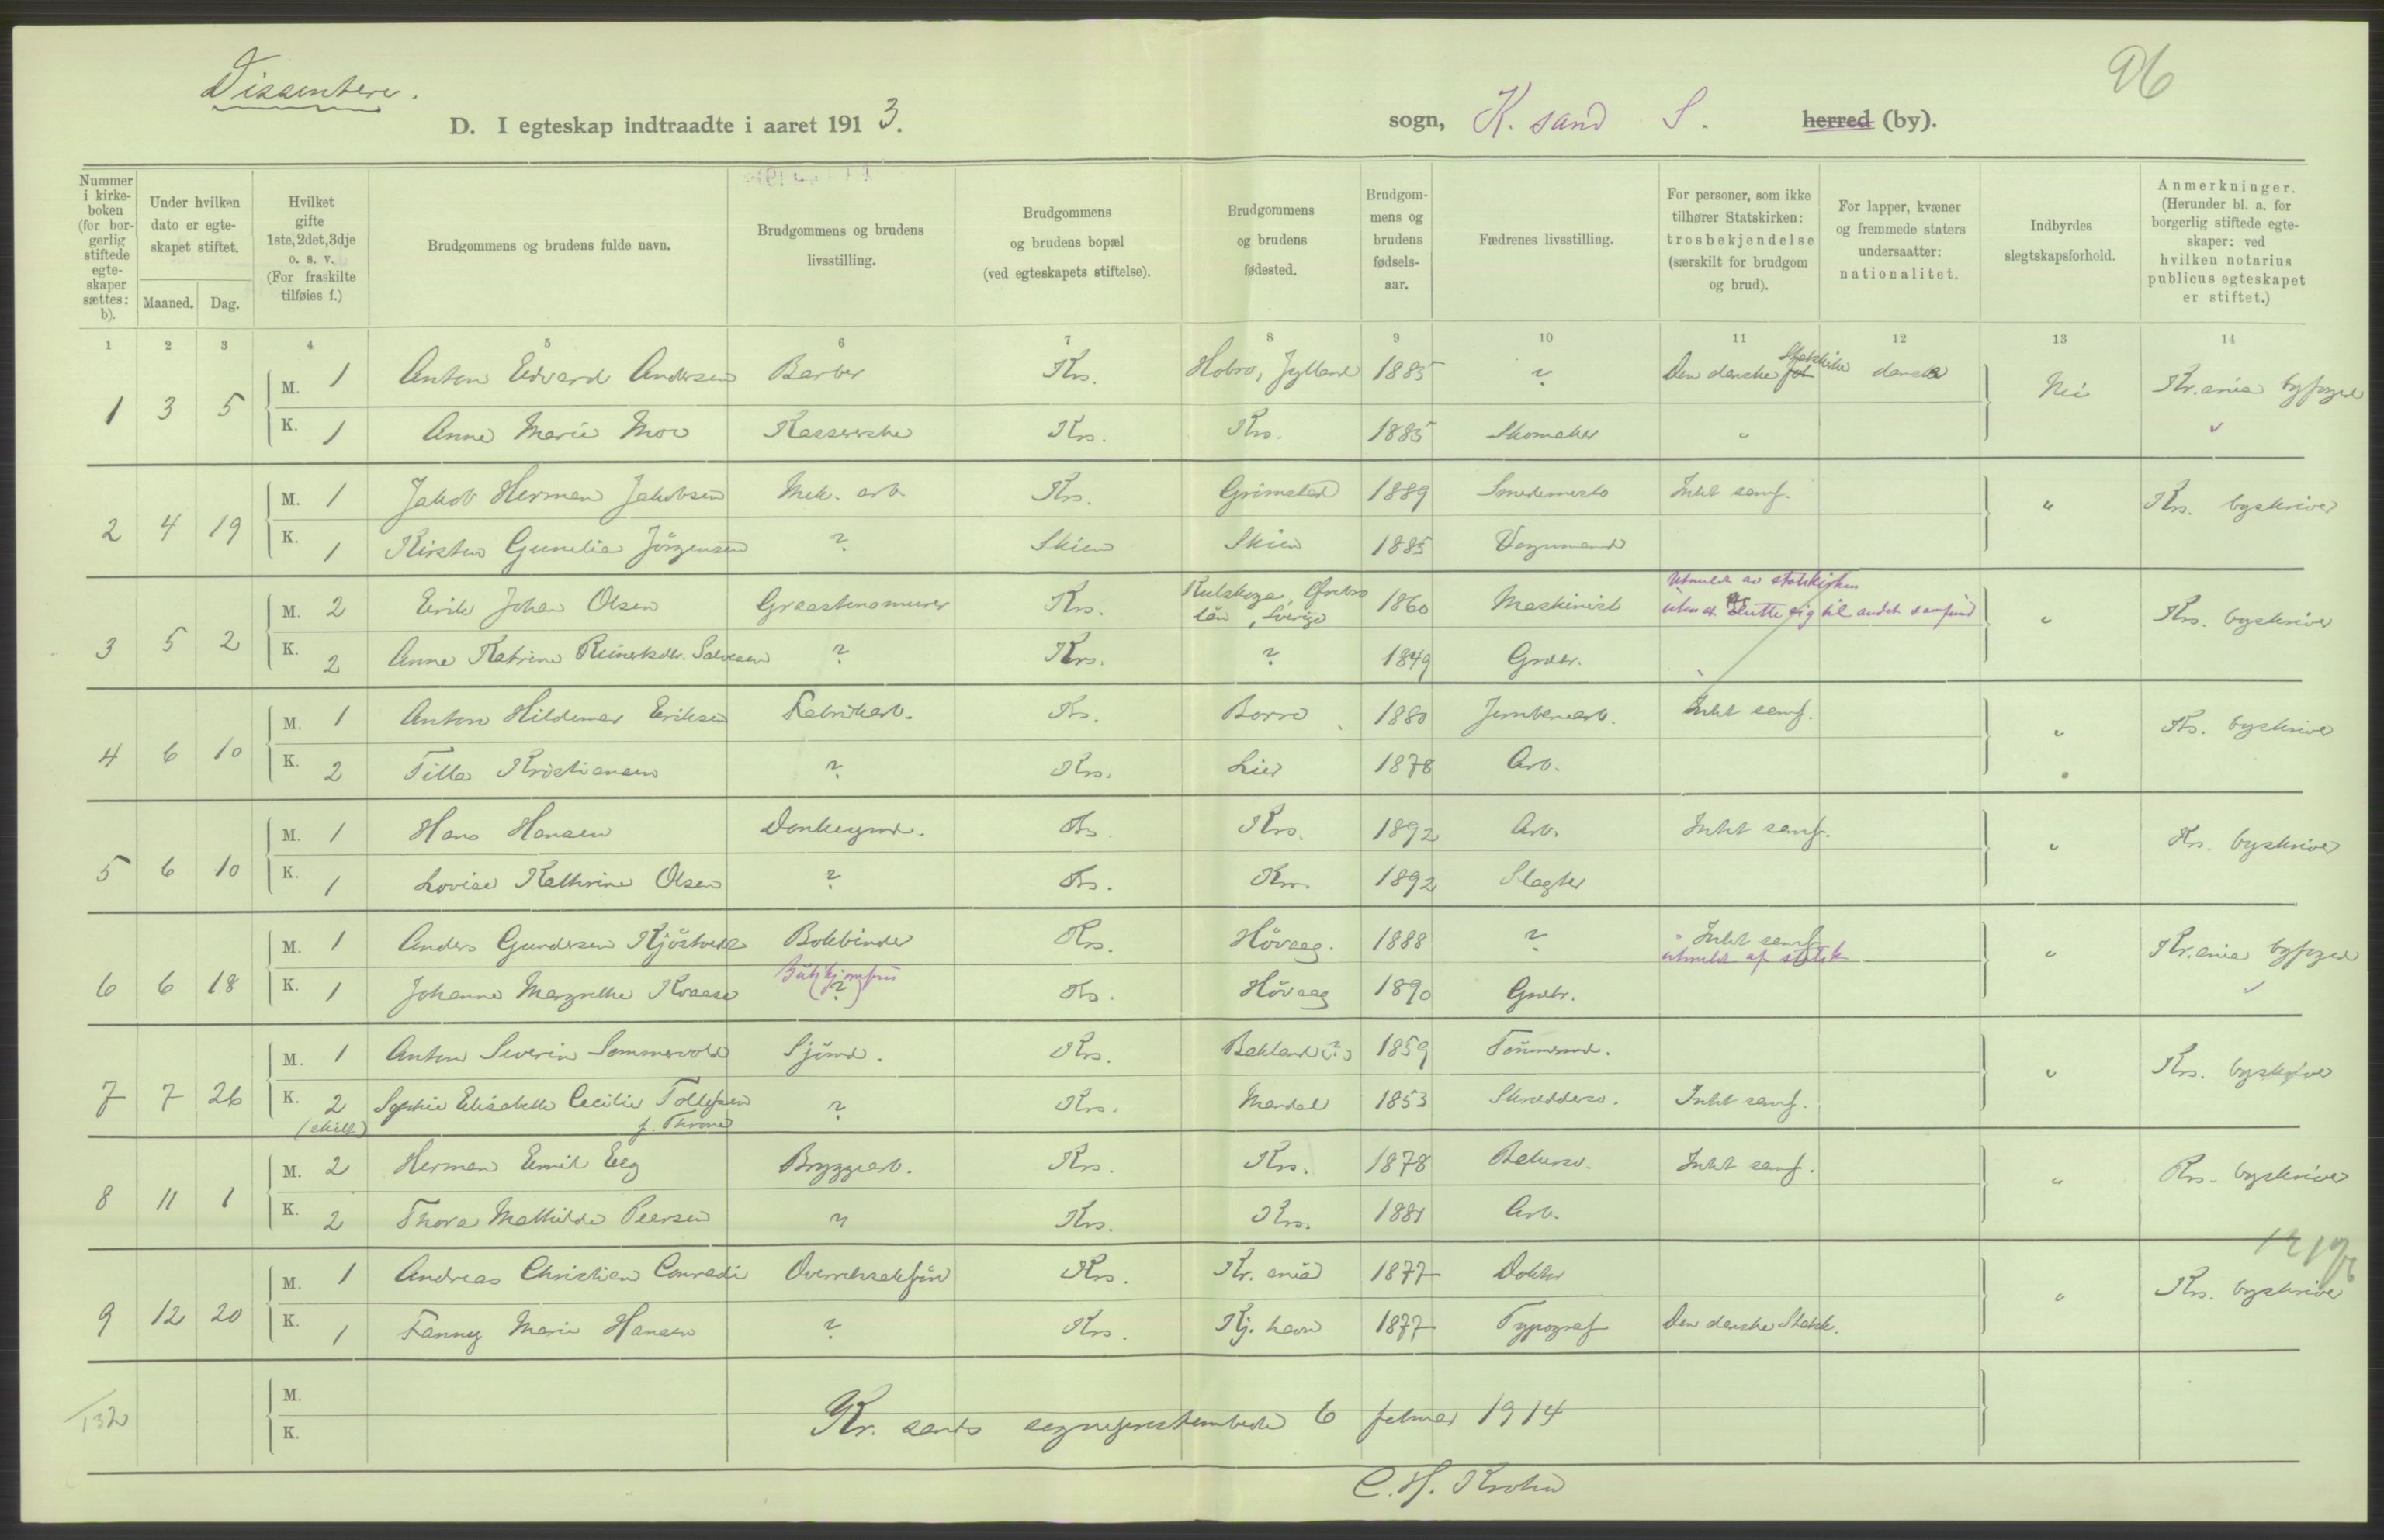 96
Dissentere.
D. I egteskap indtraadte i aaret 1913. sogn, K. sand S. herred (by).
Nummer i kirkeboken (for borgerlig stiftede egteskaper sættes: b).
Under hvilken dato er egteskapet stiftet.
Maaned. Dag.
Hvilket gifte 1ste, 2det, 3dje o. s. v. (For fraskilte tilføies f.)
Brudgommens og brudens fulde navn.
Brudgommens og brudens livsstilling.
Brudgommens og brudens bopæl (ved egteskapets stiftelse).
Brudgommens og brudens fødested.
Brudgommens og brudens fødselsaar.
Fædrenes livsstilling.
For personer, som ikke tilhører Statskirken: trosbekjendelse (særskilt for brudgom og brud).
For lapper, kvæner og fremmede staters undersaatter: nationalitet.
Indbyrdes slegtskapsforhold.
Anmerkninger. (Herunder bl. a. for borgerlig stiftede egteskaper: ved hvilken notarius publicus egteskapet er stiftet.)
1 2 3 4 5 6 7 8 9 10 11 12 13 14
1 3 5 M. 1 Anton Edvard Andersen Barber Krs. Hobro, Jylland 1885 ? Den danske Statskirke dansk Nei Kr.ania byfoged
K. 1 Anne Marie Moe Kassererske Krs. Krs. 1885 Skomaker "
2 4 19 M. 1 Jakob Herman Jakobsen Mek. arb. Krs. Grimstad 1889 Smedemester Intet samf. " Krs. byskriver
K. 1 Kirsten Gunelia Jörgensen ? Skien Skien 1885 Vognmand
3 5 2 M. 2 Erik Johan Olsen Graastensmurer Krs. Örebro län, Sverige 1860 Maskinist Utmeldt av statskirken uten at slutte sig til andet samfund " Krs. byskriver
K. 2 Anne Katrine Reinertsdtr. Salvesen ? Krs. ? 1849 Grdbr.
4 6 10 M. 1 Anton Hildemar Eriksen Fabrikarb. Krs. Borre 1880 Jernbanearb. Intet samf. " Krs. byskriver
K. 2 Tilla Kristiansen ? Krs. Lier 1878 Arb.
5 6 10 M. 1 Hans Hansen Donkeymd. Krs. Krs. 1892 Arb. Intet samf. " Krs. byskriver
K. 1 Lovise Kathrine Olsen ? Krs. Krs. 1892 Slagter
6 6 18 M. 1 Anders Gundersen Kjöstvedt Bokbinder Krs. Hövaag. 1888 ? Intet samf. utmeldt af statsk " Kr.ania byfoged
K. 1 Johanne Margrethe Kvaase Butikjomfru (?) Krs. Hövaag 1890 Grdbr.
7 7 26 M. 1 Anton Severin Sommervold Sjömd. Krs. Bakland (?) 1859 Tömmermd. " Krs. byskriver
K. 2 (skilt) Sophie Elisabeth Cecilie Tollefsen f. Throne ? Krs. Mandal 1853 Skreddersv. Intet samf.
8 11 1 M. 2 Herman Emil Eeg Bryggearb. Krs. Krs. 1878 Bakersv. Intet samf. " Krs. byskriver
K. 2 Thora Mathilde Peersen ? Krs. Krs. 1881 Arb.
9 12 20 M. 1 Andreas Christian Conradi Overretssakförer Krs. Kr. ania 1877 Doktor " Krs. byskriver
K. 1 Fanny Marie Hansen ? Krs. Kj. havn 1877 Typograf Den danske Statsk.
132 M.
K.
Kr. sands sogneprestembede 6 februar 1914
C. H. Krohn